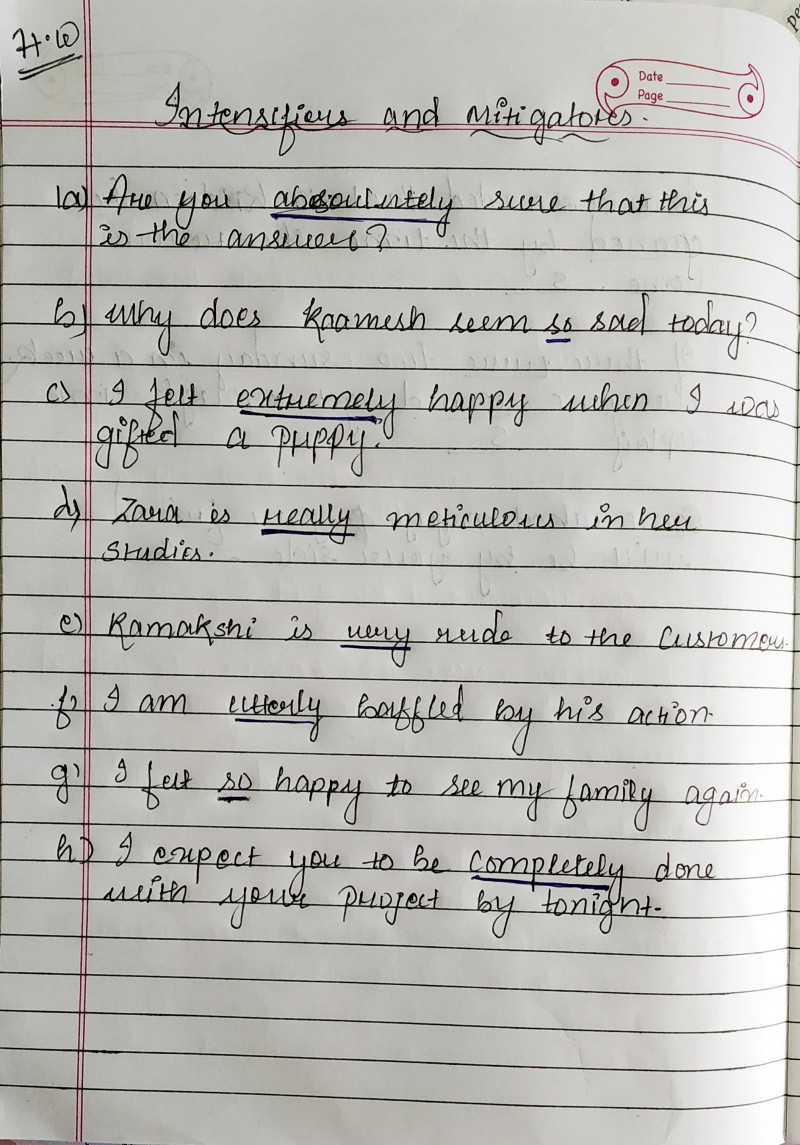 H.W
Date
Page
Intensifiers and Mitigators.
1a) Are you absoulutely sure that this
is the answer?
b) Why does Kaamesh seem so sad today?
c) I felt extremely happy when I was
gifted a puppy.
d) Zara is really meticulous in her
studies.
e) Kamakshi is very rude to the customers.
f) I am utterly baffled by his action.
g) I felt so happy to see my family again.
h) I expect you to be completely done
with your project by tonight.